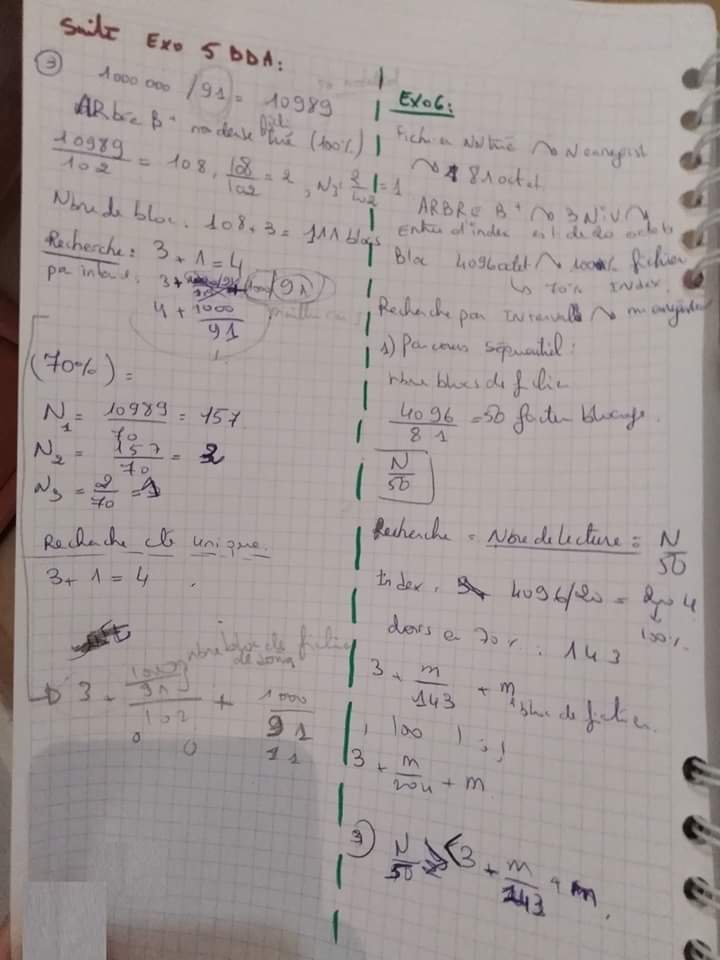 Suite Exo 5 BDA:
③ 1000 000 / 91 = 10989
ARbre B+ non dense trié (100%)
10989/102 = 108, 108/102 = 2, N3: 2/102 = 1
Nbre de bloc. 108 + 3 = 111 blocs
Recherche: 3 + 1 = 4
par interv.
4 + 1000/91
(70%) =
N1 = 10989/70 = 157
N2 = 157/70 = 2
N3 = 2/70 = 1
Recherche clé unique.
3 + 1 = 4
nbre bloc de fichier
3 + 1000/91/102 + 1000/91
11
EXO6:
Fichier Non trié ~ N enregist
~ 81 octet.
ARBRE B+ ~ 3 Niv
Entrée d'index est de 20 octets
Bloc 4096 octet ~ 100% fichier
↳ 70% INDEX.
Recherche par INtervalle ~ m enregistr
1) Parcours séquentiel:
nbre blocs de fichier
4096/81 = 50 facteur blocage.
N/50
Recherche = Nbre de lecture = N/50
Index. 4096/20 = 204
100%.
dors a 70%. : 143
3 + m/143 + m
bloc de fichier.
100
3 + m/204 + m
3) N/50 < 3 + m/143 + m.